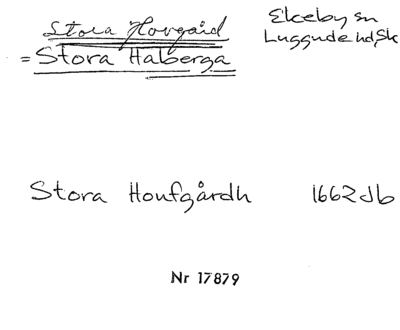 Stora Hovgård
= Stora Haberga
Ekeby sn
Luggude hd Sk
Stora Houfgårdh 1662 Jb
Nr 17879